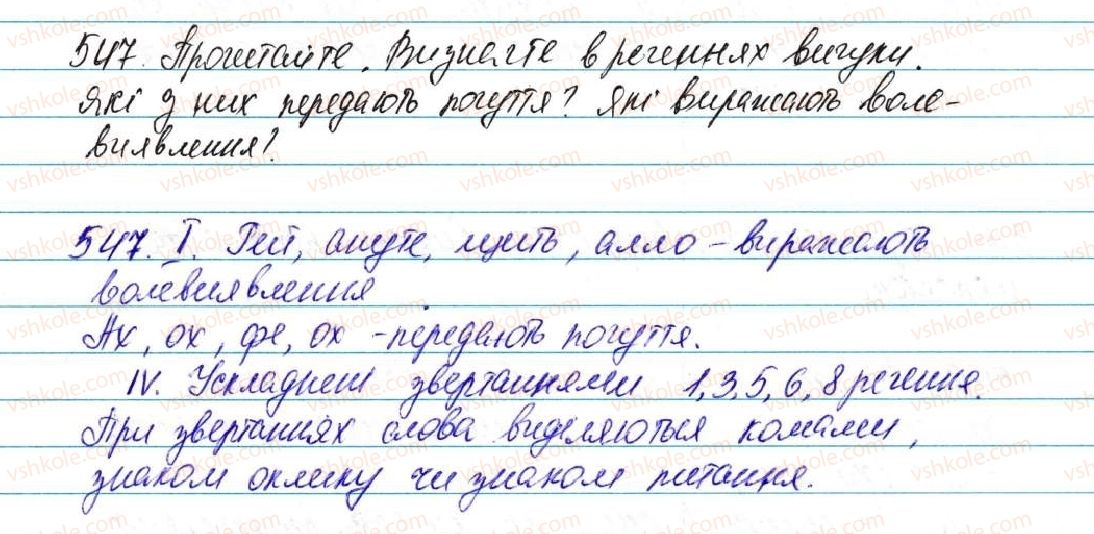 547. Прочитайте. Визначте в реченнях вигуки.
Які з них передають почуття? Які виражають воле-
виявлення?
547. I. Гей, ануте, цить, алло – виражають
волевиявлення
Ах, ох, фе, ох – передають почуття.
IV. Ускладнені звертаннями 1, 3, 5, 6, 8 речення.
При звертаннях слова виділяються комами,
знаком оклику чи знаком питання.